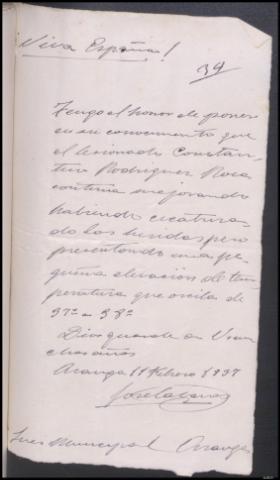 Viva España!
39
Tengo el honor de poner
en su conocimiento que
el lesionado Constan-
tino Rodriguez Roca
continua mejorando
habiendo cicatriza-
do las heridas pero
presentando una pe-
queña elevación de tem-
peratura que oscila de
37º a 38º
Dios guarde a V. 
muchos años
Aranga 11 Febrero 1937
Juez Municipal Aranga